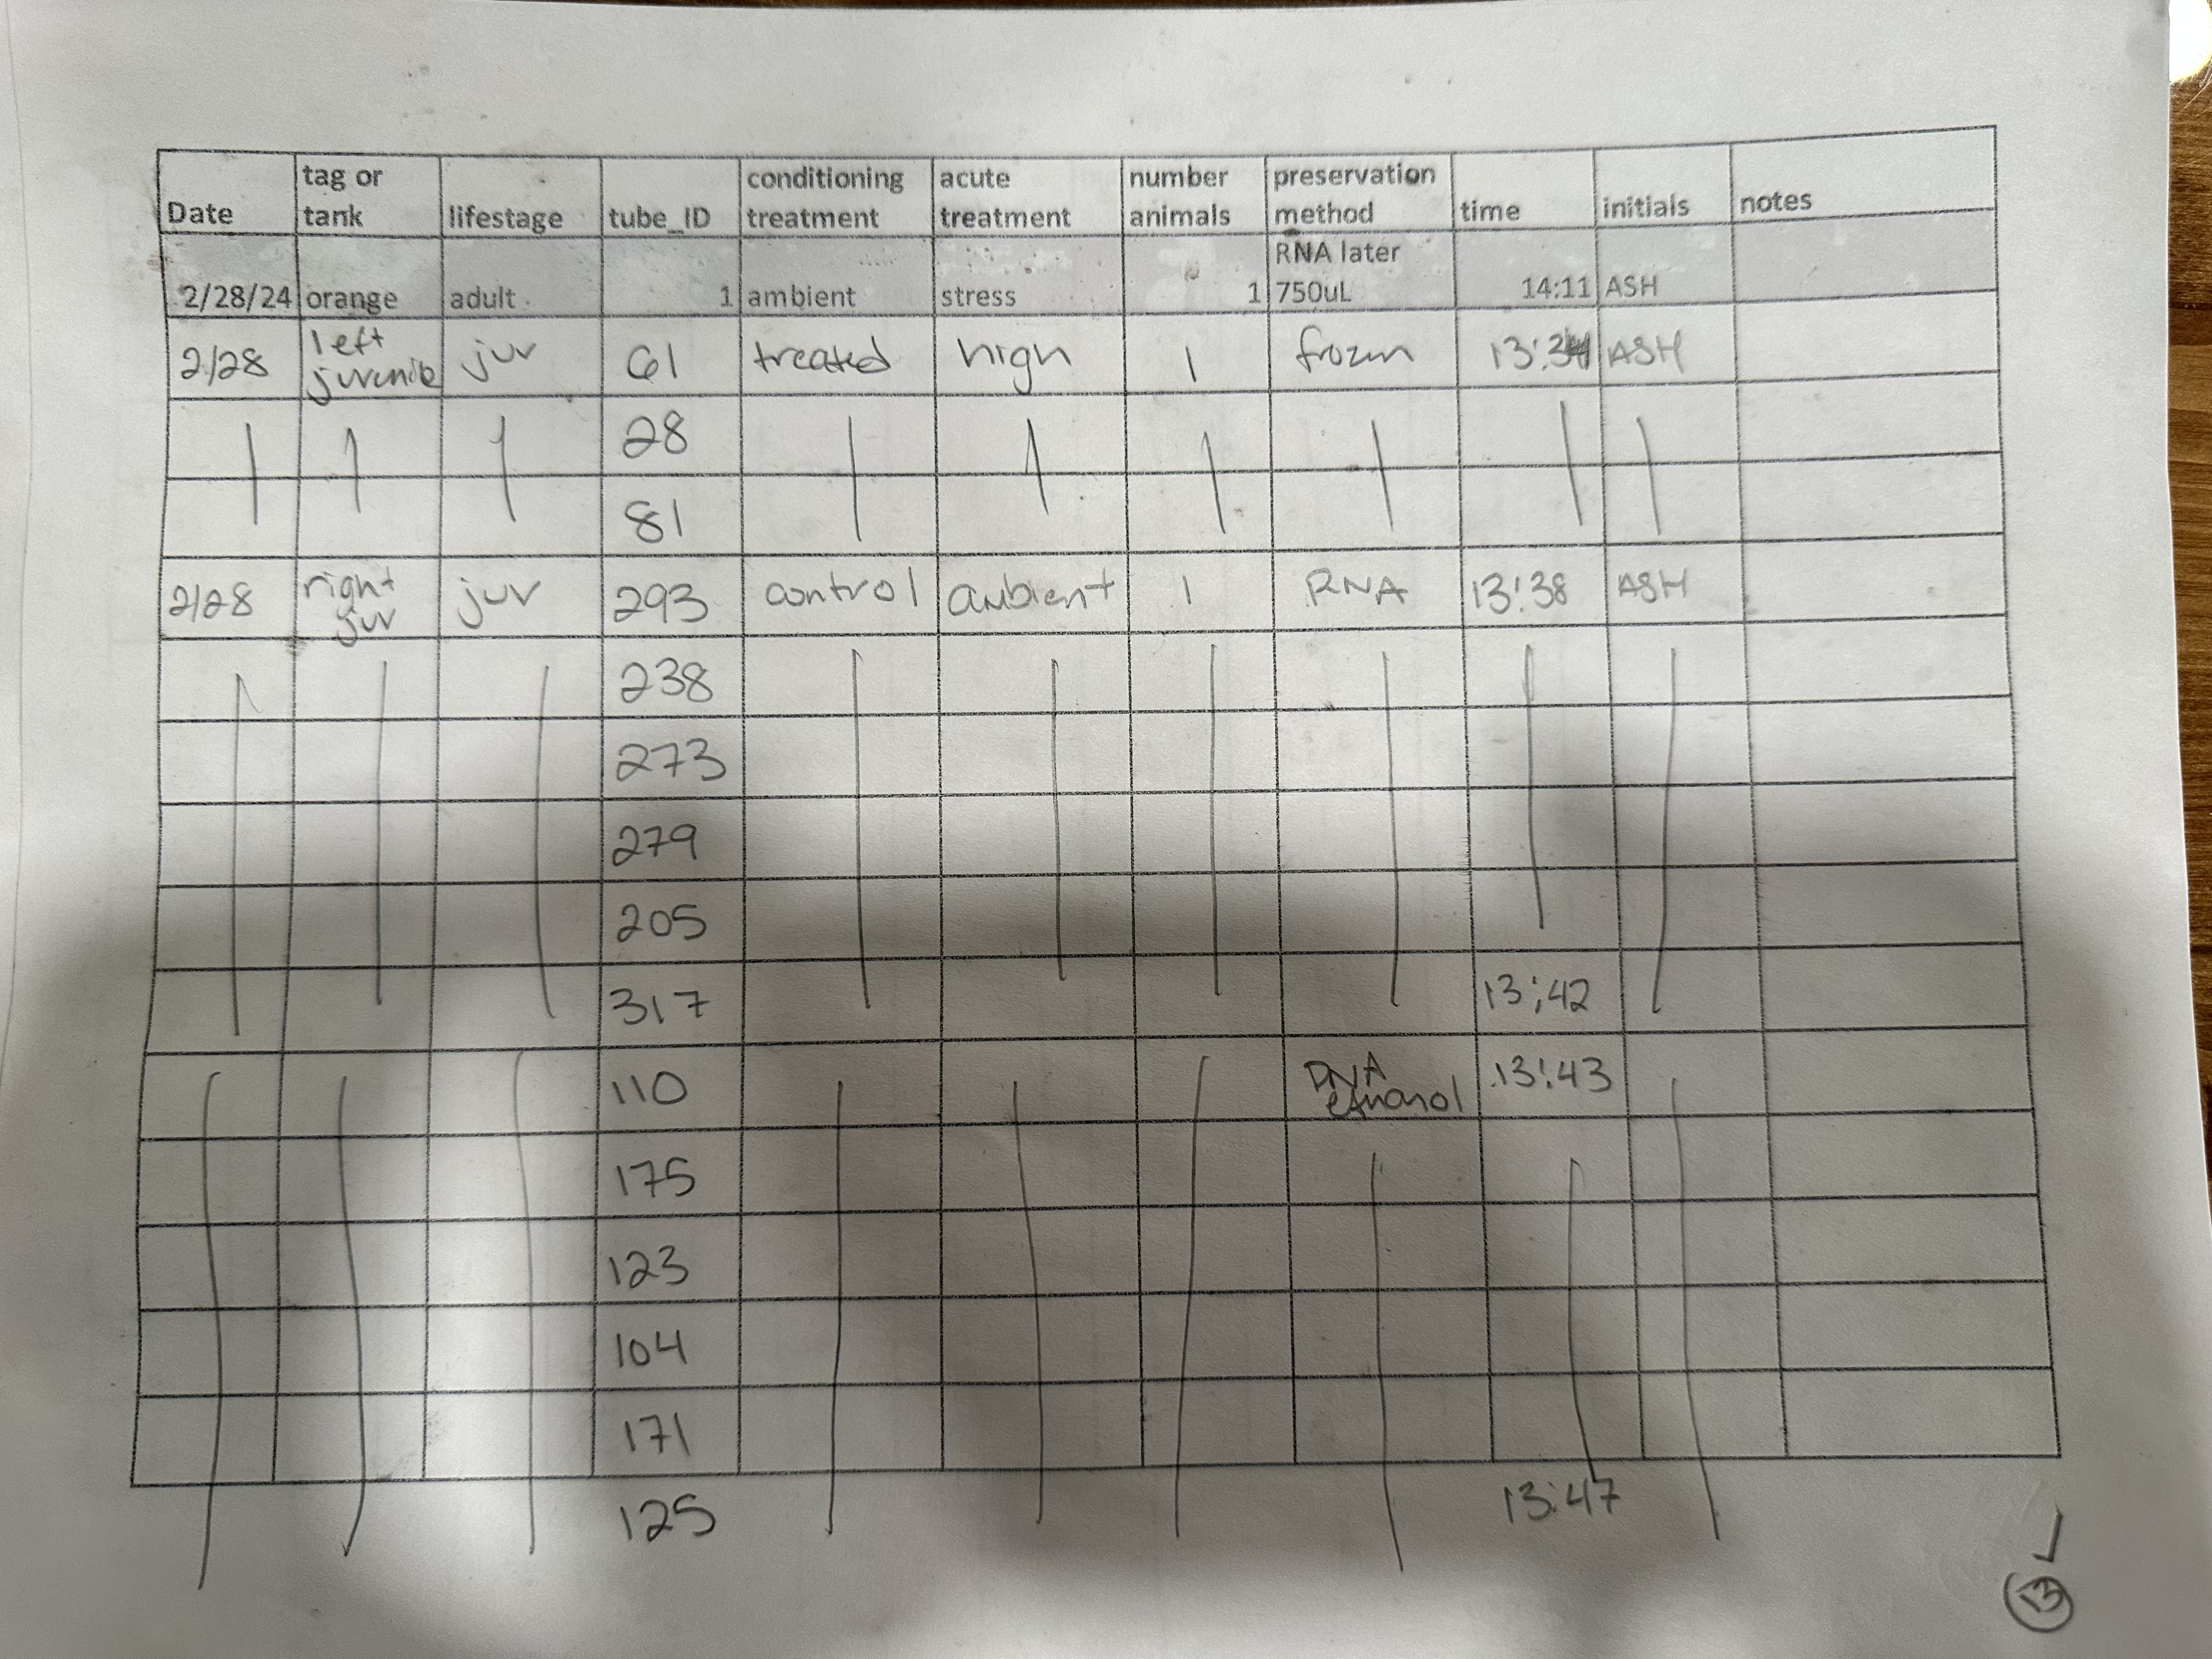 Date tag or tank lifestage tube_ID conditioning treatment acute treatment number animals preservation method time initials notes
2/28/24 orange adult 1 ambient stress 1 RNA later 750uL 14:11 ASH
2/28 left juv 61 treated high 1 frozen ASH
28
81
2/28 right juv juv 293 control ambient 1 RNA 13:38 ASH
238
273
279
205
317 13:42
110 DNA ethanol 13:43
175
123
104
171
125 13:47
13